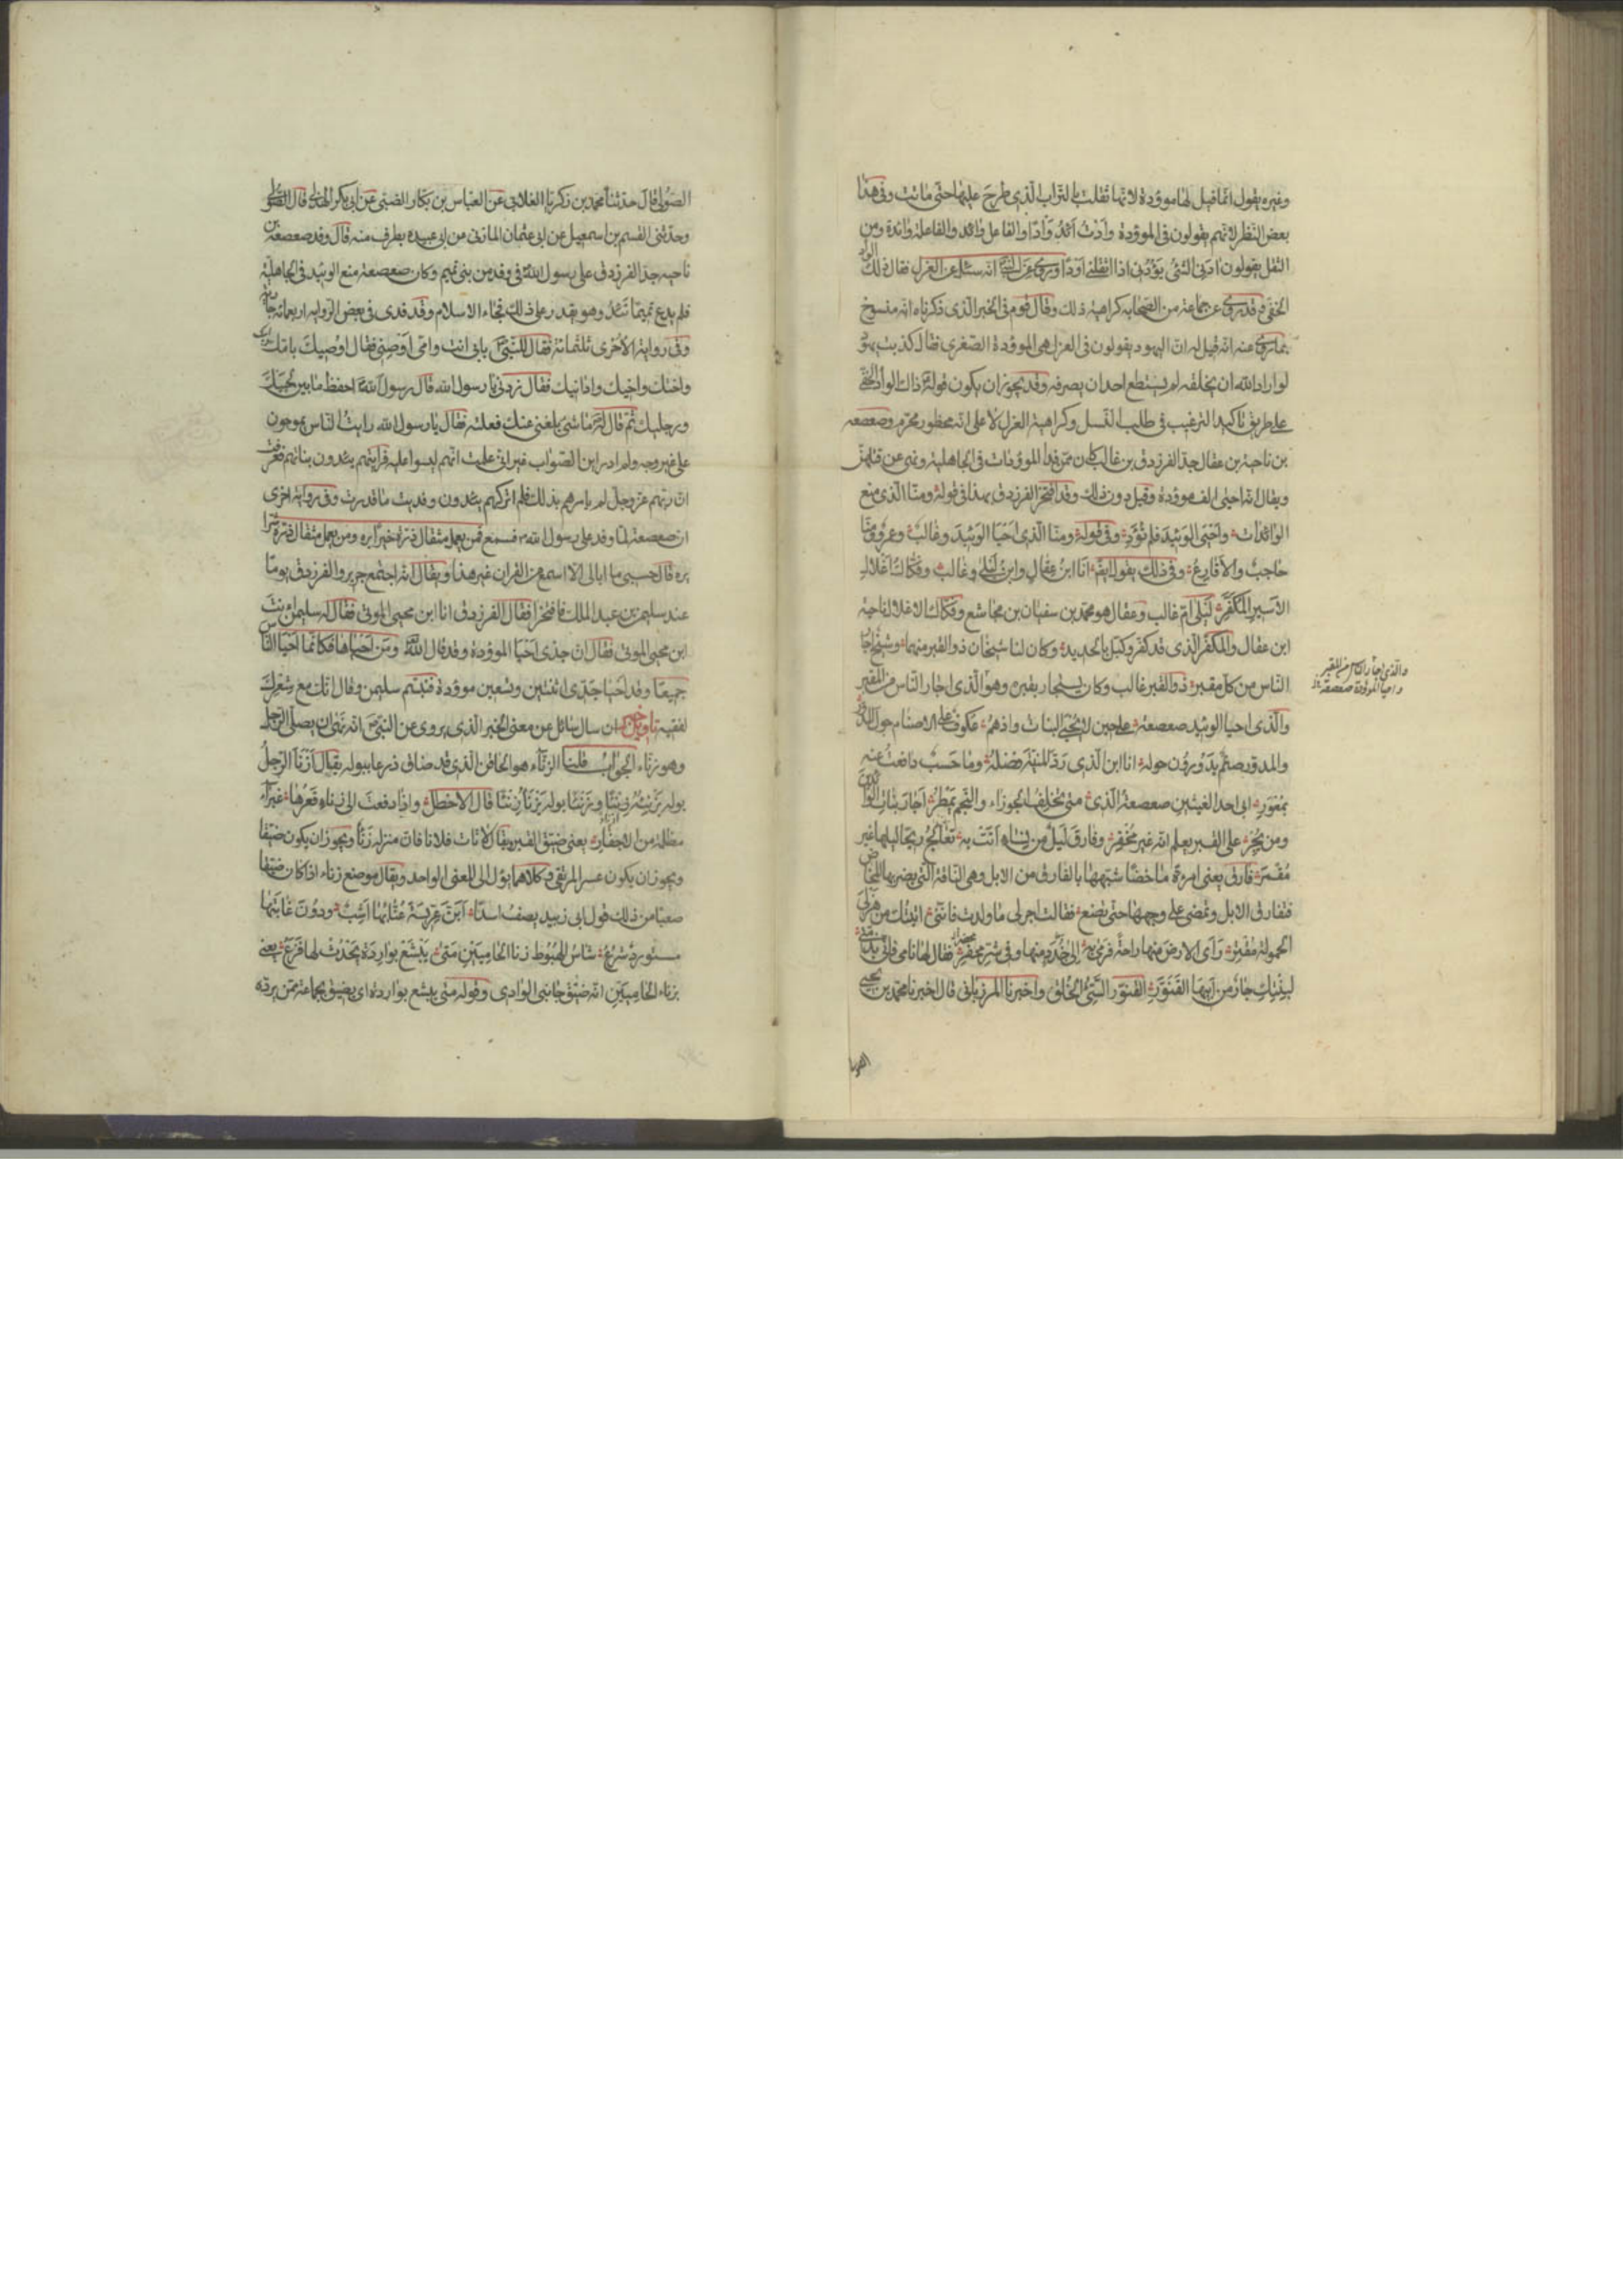 وغيره يقول انما قيل لها موؤدة لانها ثقلت بالتراب الذي طرح عليها حتى ماتت وفى هذا
بعض النظر لانهم يقولون فى الموؤدة وأدت أئد وأدا والفاعل وائد والفاعلة وائدة ومن
الثقل يقولون ادنى الشئ يؤدنى اذا اثقلنى اودا وروى عن النبى انه سئل عن العزل فقال ذلك الواد
الخفى وقد روى عن جماعة من الصحابه كراهية ذلك وقال قوم فى الخبر الذى ذكرناه انه منسوخ
بما روى عنه انه قيل له ان اليهود يقولون فى العزل هى الموؤدة الصغرى فقال كذبت يهود
لو اراد الله ان يخلقه لم يستطع احد ان يصرفه وقد يجوز ان يكون قوله ذاك الواد الخفى
على طريق تاكيد الترغيب فى طلب النسل وكراهية العزل لا على انه محظور محرم وصعصعه
بن ناجية بن عقال جد الفرزدق بن غالب كان ممن فدا الموؤدات فى الجاهلية ونهى عن قتلهن
ويقال انه احيى الف موؤدة وقيل دون ذلك وقد افتخر الفرزدق بهذا فى قوله ومنا الذى منع
الوائدات واحيى الوئيد فلم توئد وفى قوله ومنا الذى احيا الوئيد وغالب وعمرو ومنا
حاجب والاقارع وفى ذلك يقول ايضا انا ابن عقال وابن ليلى وغالب وفكاك اغلال
الاسير المكفر ليلى ام غالب وعقال هو محمد بن سفيان بن مجاشع وفكاك الاغلال ناجية
ابن عقال والمكفر الذى قد كفر وكبل بالحديد وكان لنا شيخان ذو القبر منهما وشيخ اجار
الناس من كل مقبر ذو القبر غالب وكان يستجار بقبره وهو الذى اجار الناس من المقبر
والذى احيا الوئيد صعصعة على حين لا تحيى البنات واذ هم عكوف على الاصنام حول المدور
والمدور صنم يدورون حوله انا ابن الذى رد المنية فضله وما حسب دافعت عنه
بمعور ابى احد الغيثين صعصعة الذى متى تخلف الجوزاء والنجم يمطر اجار بنات الوائدين
ومن يجر على القبر يعلم انه غير مخفر وفارق ليل من نساء اتت به تعالج ريحا ليلها غير
مقمر فارق يعنى امرءة ماخضا شبهها بالفارق من الابل وهى الناقة التى يضربها المخاض
فتفارق الابل وتمضى على وجهها حتى تضع فقالت اجر لى ما ولدت فاننى اتيتك من هزلى
الحمولة مقتر راى الارض منها راحة فرمى بها الى خدد منها وفى شر محفر فقال لها نامى فانى بذمتى
لبنتك جار من ابيها القنور القنور السئ الخلق واخبرنا المرزبانى قال اخبرنا محمد بن يحيى
والذى اجار الناس من المقبر
واحيا الموؤدة صعصعة
الصولى قال حدثنا محمد بن زكريا الغلابى عن العباس بن بكار الضبى عن ابى بكر الهذلى قال الصولى
وحدثنى القسم بن اسمعيل عن ابى عثمان المازنى عن ابى عبيده بطرف منه قال وفد صعصعة بن
ناجيه جد الفرزدق على رسول الله فى وفد من بنى تميم وكان صعصعة منع الوئيد فى الجاهلية
فلم يدع تميما تئد وهو يقدر على ذلك فجاء الاسلام وقد فدى فى بعض الرواية اربعمائه جارية
وفى رواية الاخرى ثلثمائة فقال للنبى بابى انت وامى اوصنى فقال اوصيك بامك وابيك
واختك واخيك وادانيك فقال زدنى يا رسول الله قال رسول الله احفظ ما بين لحييك
ورجليك ثم قال له ما شئ بلغنى عنك فعلته فقال يا رسول الله رايت الناس يموجون
على غير وجه ولم ادر اين الصواب غير انى علمت انهم ليسوا عليه فرايتهم يئدون بناتهم فعرفت
ان ربهم عز وجل لم يامرهم بذلك فلم اتركهم يئدون وفديت ما قدرت وفى رواية اخرى
ان صعصعة لما وفد على رسول الله فسمع فمن يعمل مثقال ذرة خيرا يره ومن يعمل مثقال ذرة شرا
يره قال حسبى ما ابالى الا اسمع من القران غير هذا ويقال انه اجتمع جرير والفرزدق يوما
عند سليمن بن عبد الملك فافتخرا فقال الفرزدق انا ابن محيى الموتى فقال له سليمان انت
ابن محيى الموتى فقال ان جدى احيا الموؤدة وقد قال الله ومن احياها فكانما احيا الناس
جميعا وقد احيا جدى اثنتين وتسعين موؤدة فتبسم سليمن وقال انك مع شعرك
لفقيه تاويل خبر ان سال سائل عن معنى الخبر الذى يروى عن النبى انه نهى ان يصلى الرجل
وهو زناء الجواب قلنا الزناء هو الحاقن الذى قد ضاق ذرعا ببوله يقال ازنا الرجل
بوله يزنئه ازناء وزنا بوله يزنأ زنئا قال الاخطل واذا دفعت الى زناء قعرها غبراء
مظلمة من الاحفار يعنى ضيق القبر ويقال لا تات فلانا فان منزله زناء ويجوز ان يكون ضيقا
ويجوز ان يكون عسر المرتقى وكلاهما يؤل الى المعنى الواحد ويقال موضع زناء اذا كان ضيقا
صعبا من ذلك قول ابى زبيد يصف اسدا ابن عريسة عنابها اشب ودون غابتها
مستورد شرع شاس الهبوط زناء الحاميين متى يبشع بواردة يحدث لها فزع يعنى
بزناء الحاميين انه ضيق جانبى الوادى وقوله متى يبشع بواردة اى يضيق بجماعة ممن يرده